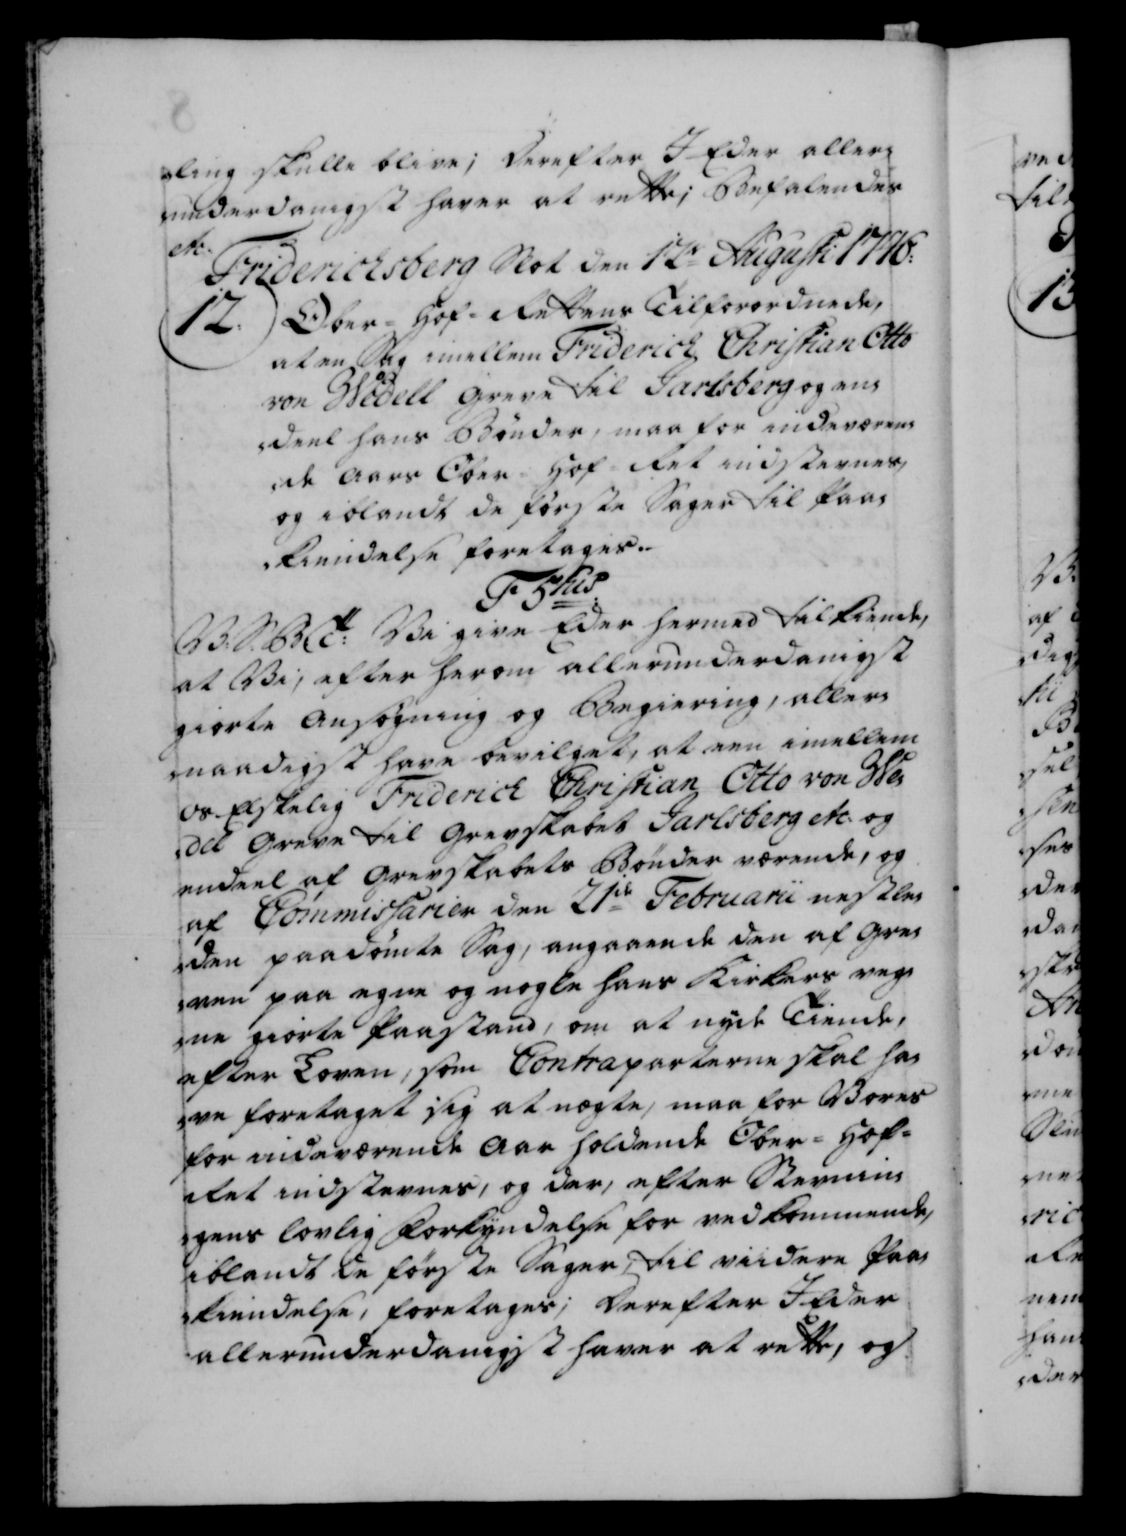 ling skulle blive; Derefter I Eder aller-
underdanigst haver at rette; Befalendes
etc. Friderichsberg Slot den 12te Augusti 1746.
12. Ober-Hof-Rettens Tilforordnede,
at en Sag imellem Friderich Christian Otto
von Wedell Greve til Jarlsberg og een
deel hans Bönder, maa for indeværen-
de Aars Ober-Hof-Ret indstevnes,
og iblandt de förste Sager til Paa-
kiendelse foretages.
F 5tus
V. S. B. Vi give Eder hermed tilkiende,
at Vi, efter herom allerunderdanigst
giorte Ansögning og Begiering, aller-
naadigst have bevilget, at een imellem
Os Elskelig Friderich Christian Otto von We-
del Greve til Grevskabet Jarlsberg etc. og
endeel af Grevskabets Bönder værende, og
af Commissarier den 21de Februarii nestle-
den paadömte Sag, angaaende den af Gre-
ven paa egne og nogle hans Kirkers veg-
ne giorte Paastand, om at nyde Tiende,
efter Loven, som Contraparterne skal ha-
ve foretaget sig at nægte, maa for Vores
for indeværende Aar holdende Ober-Hof-
Ret indstevnes, og der, efter Stevnin-
gens lovlig Forkyndelse for vedkommende,
iblandt de förste Sager, til viidere Paa-
kiendelse, foretages; Derefter I Eder
allerunderdanigst haver at rette, og